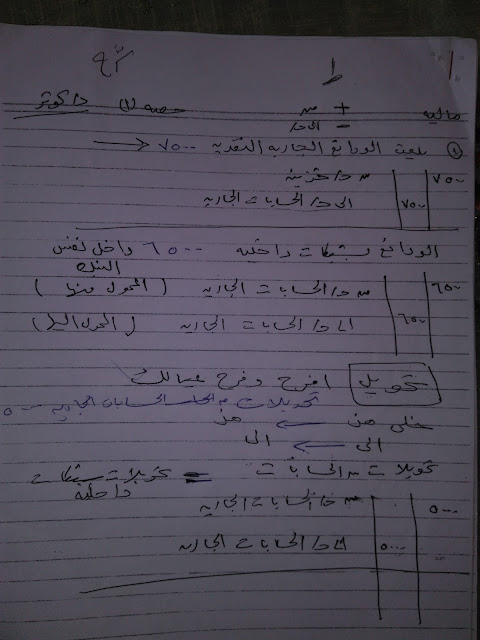 ماليه + من حصه (١) دكتور
- الى ح/
① بلغت الودائع الجاريه النقديه ٧٥٠٠
٧٥٠٠ من ح/ خزينه
٧٥٠٠ الى ح/ الحسابات الجاريه
الودائع بشيكات داخليه ٦٥٠٠ داخل نفس البنك
٦٥٠٠ من ح/ الحسابات الجاريه (المحول منها)
٦٥٠٠ الى ح/ الحسابات الجاريه (المحول اليها)
تحويل افرح وفرح عيالك
تحويلات من الحسابات الجاريه ٥٠٠٠
خلى من ← من
الى ← الى
تحويلات من الحسابات = تحويلات شيكات داخليه
٥٠٠٠ من ح/ الحسابات الجاريه
٥٠٠٠ الى ح/ الحسابات الجاريه